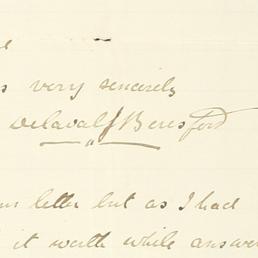 s very sincerely
Delaval J Beresford
letter but as I had
it worth while answer